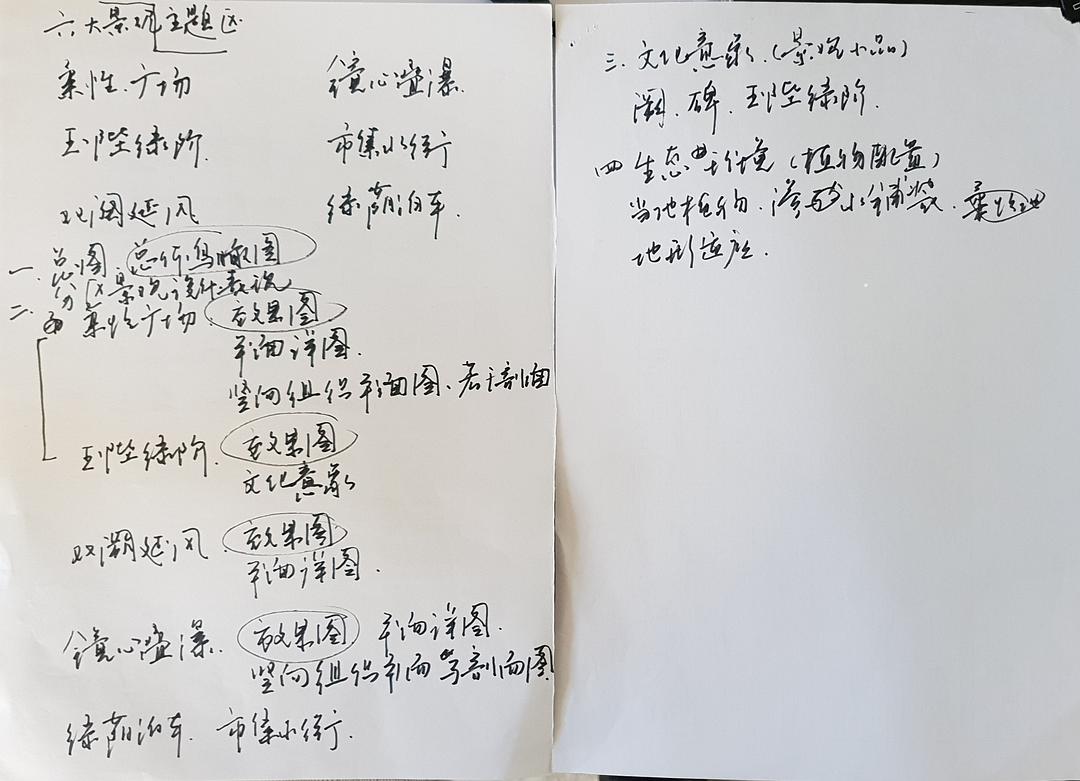 六大景观主题区
柔性广场 镜心叠瀑
玉陛绿阶 市集水街
双阙延风 绿荫泊车
一. 总图 总体鸟瞰图
分区景观设计
二. 柔性广场 效果图
平面详图.
竖向组织平面图、若干剖面
玉陛绿阶. 效果图
文化意象
双阙延风. 效果图
平面详图.
镜心叠瀑. 效果图 平面详图.
竖向组织平面与剖面图
绿荫泊车. 市集水街.
三. 文化意象(景观小品)
阙、碑、玉陛绿阶.
四 生态 境(植物配置)
当地植物. 渗 水铺装.
地形适应.